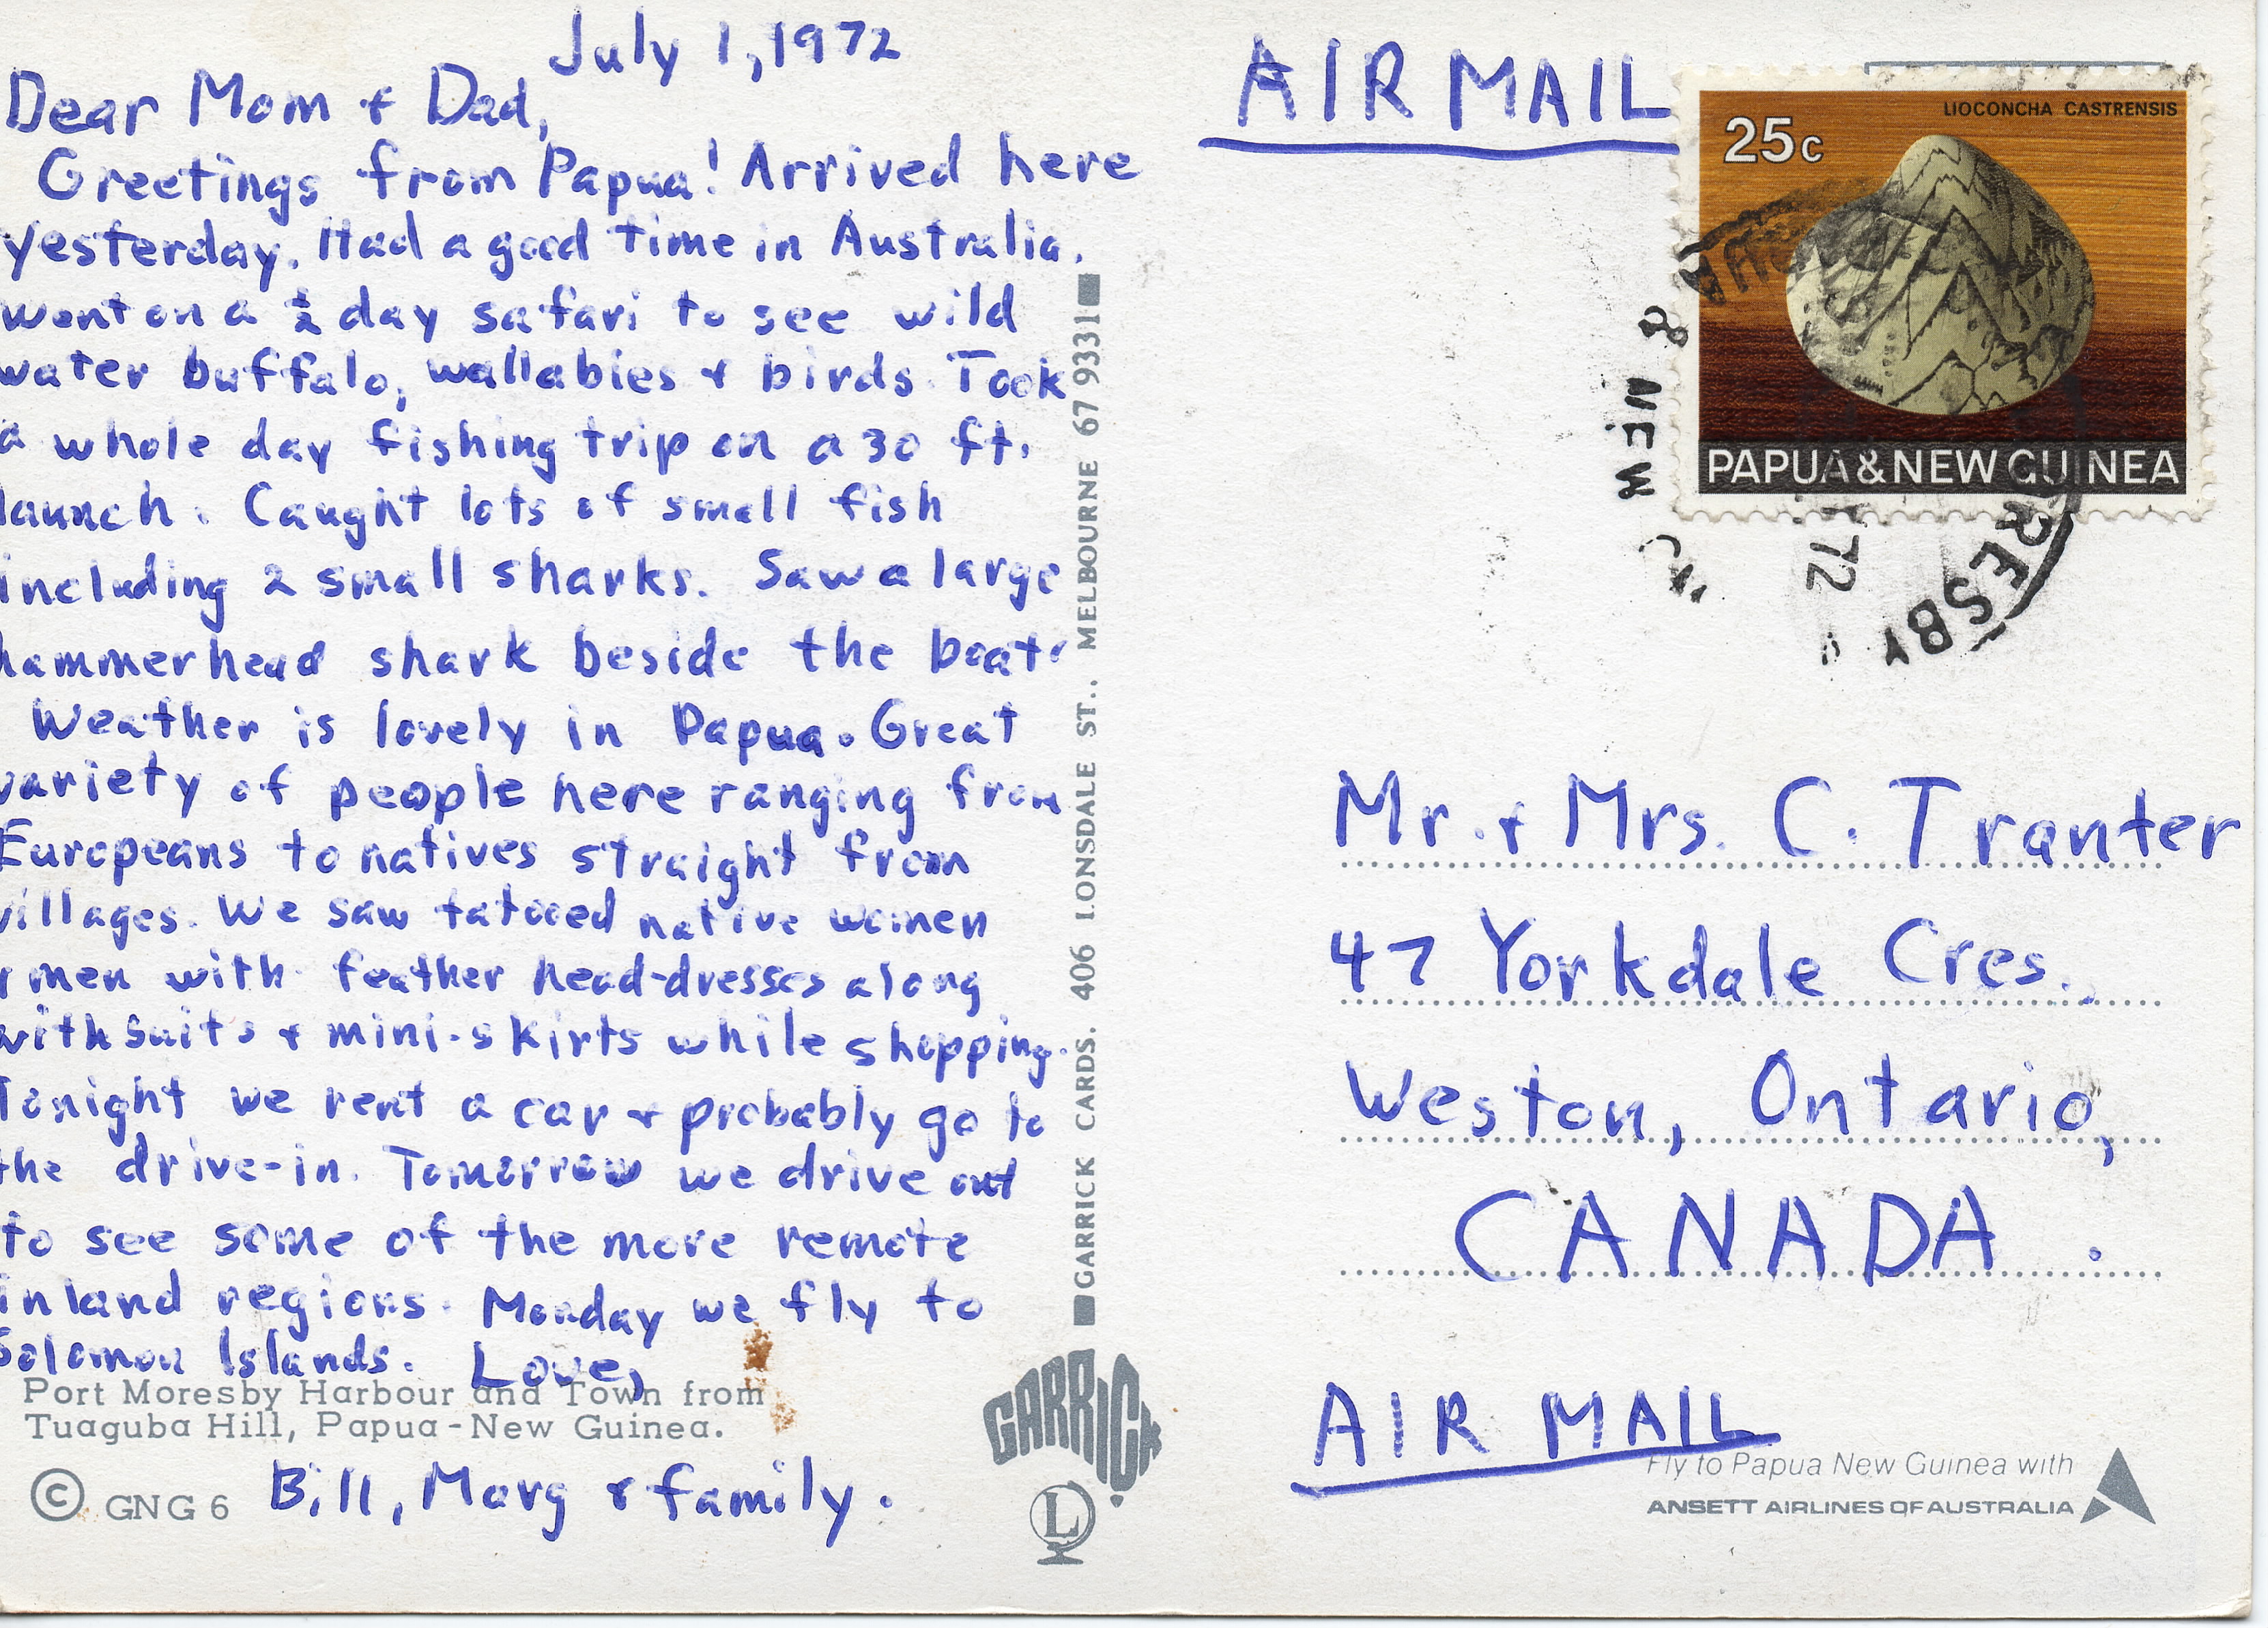 July 1, 1972
Dear Mom + Dad,
Greetings from Papua! Arrived here
yesterday. Had a good time in Australia.
Went on a ½ day safari to see wild
water buffalo, wallabies + birds. Took
a whole day fishing trip on a 30 ft.
launch. Caught lots of small fish
including 2 small sharks. Saw a large
hammerhead shark beside the boat.
Weather is lovely in Papua. Great
variety of people here ranging from
Europeans to natives straight from
villages. We saw tatooed native women
+ men with feather head-dresses along
with suits + mini-skirts while shopping.
Tonight we rent a car + probably go to
the drive-in. Tomorrow we drive out
to see some of the more remote
inland regions. Monday we fly to
Solomon Islands. Love,
Port Moresby Harbour and Town from
Tuaguba Hill, Papua-New Guinea.
© GNG 6
Bill, Marg & family.
GARRICK CARDS. 406 LONSDALE ST., MELBOURNE 67 9331
GARRICK
L
AIR MAIL
LIOCONCHA CASTRENSIS
25c
PAPUA & NEW GUINEA
& NEW
RESBY
72
Mr. + Mrs. C. Tranter
47 Yorkdale Cres.,
Weston, Ontario,
CANADA.
AIR MAIL
Fly to Papua New Guinea with
ANSETT AIRLINES OF AUSTRALIA